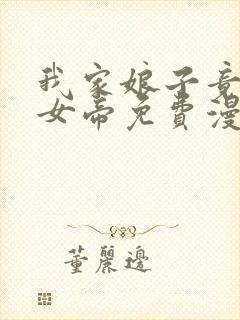 我家娘子竟
女帝免費漫
董麗邊